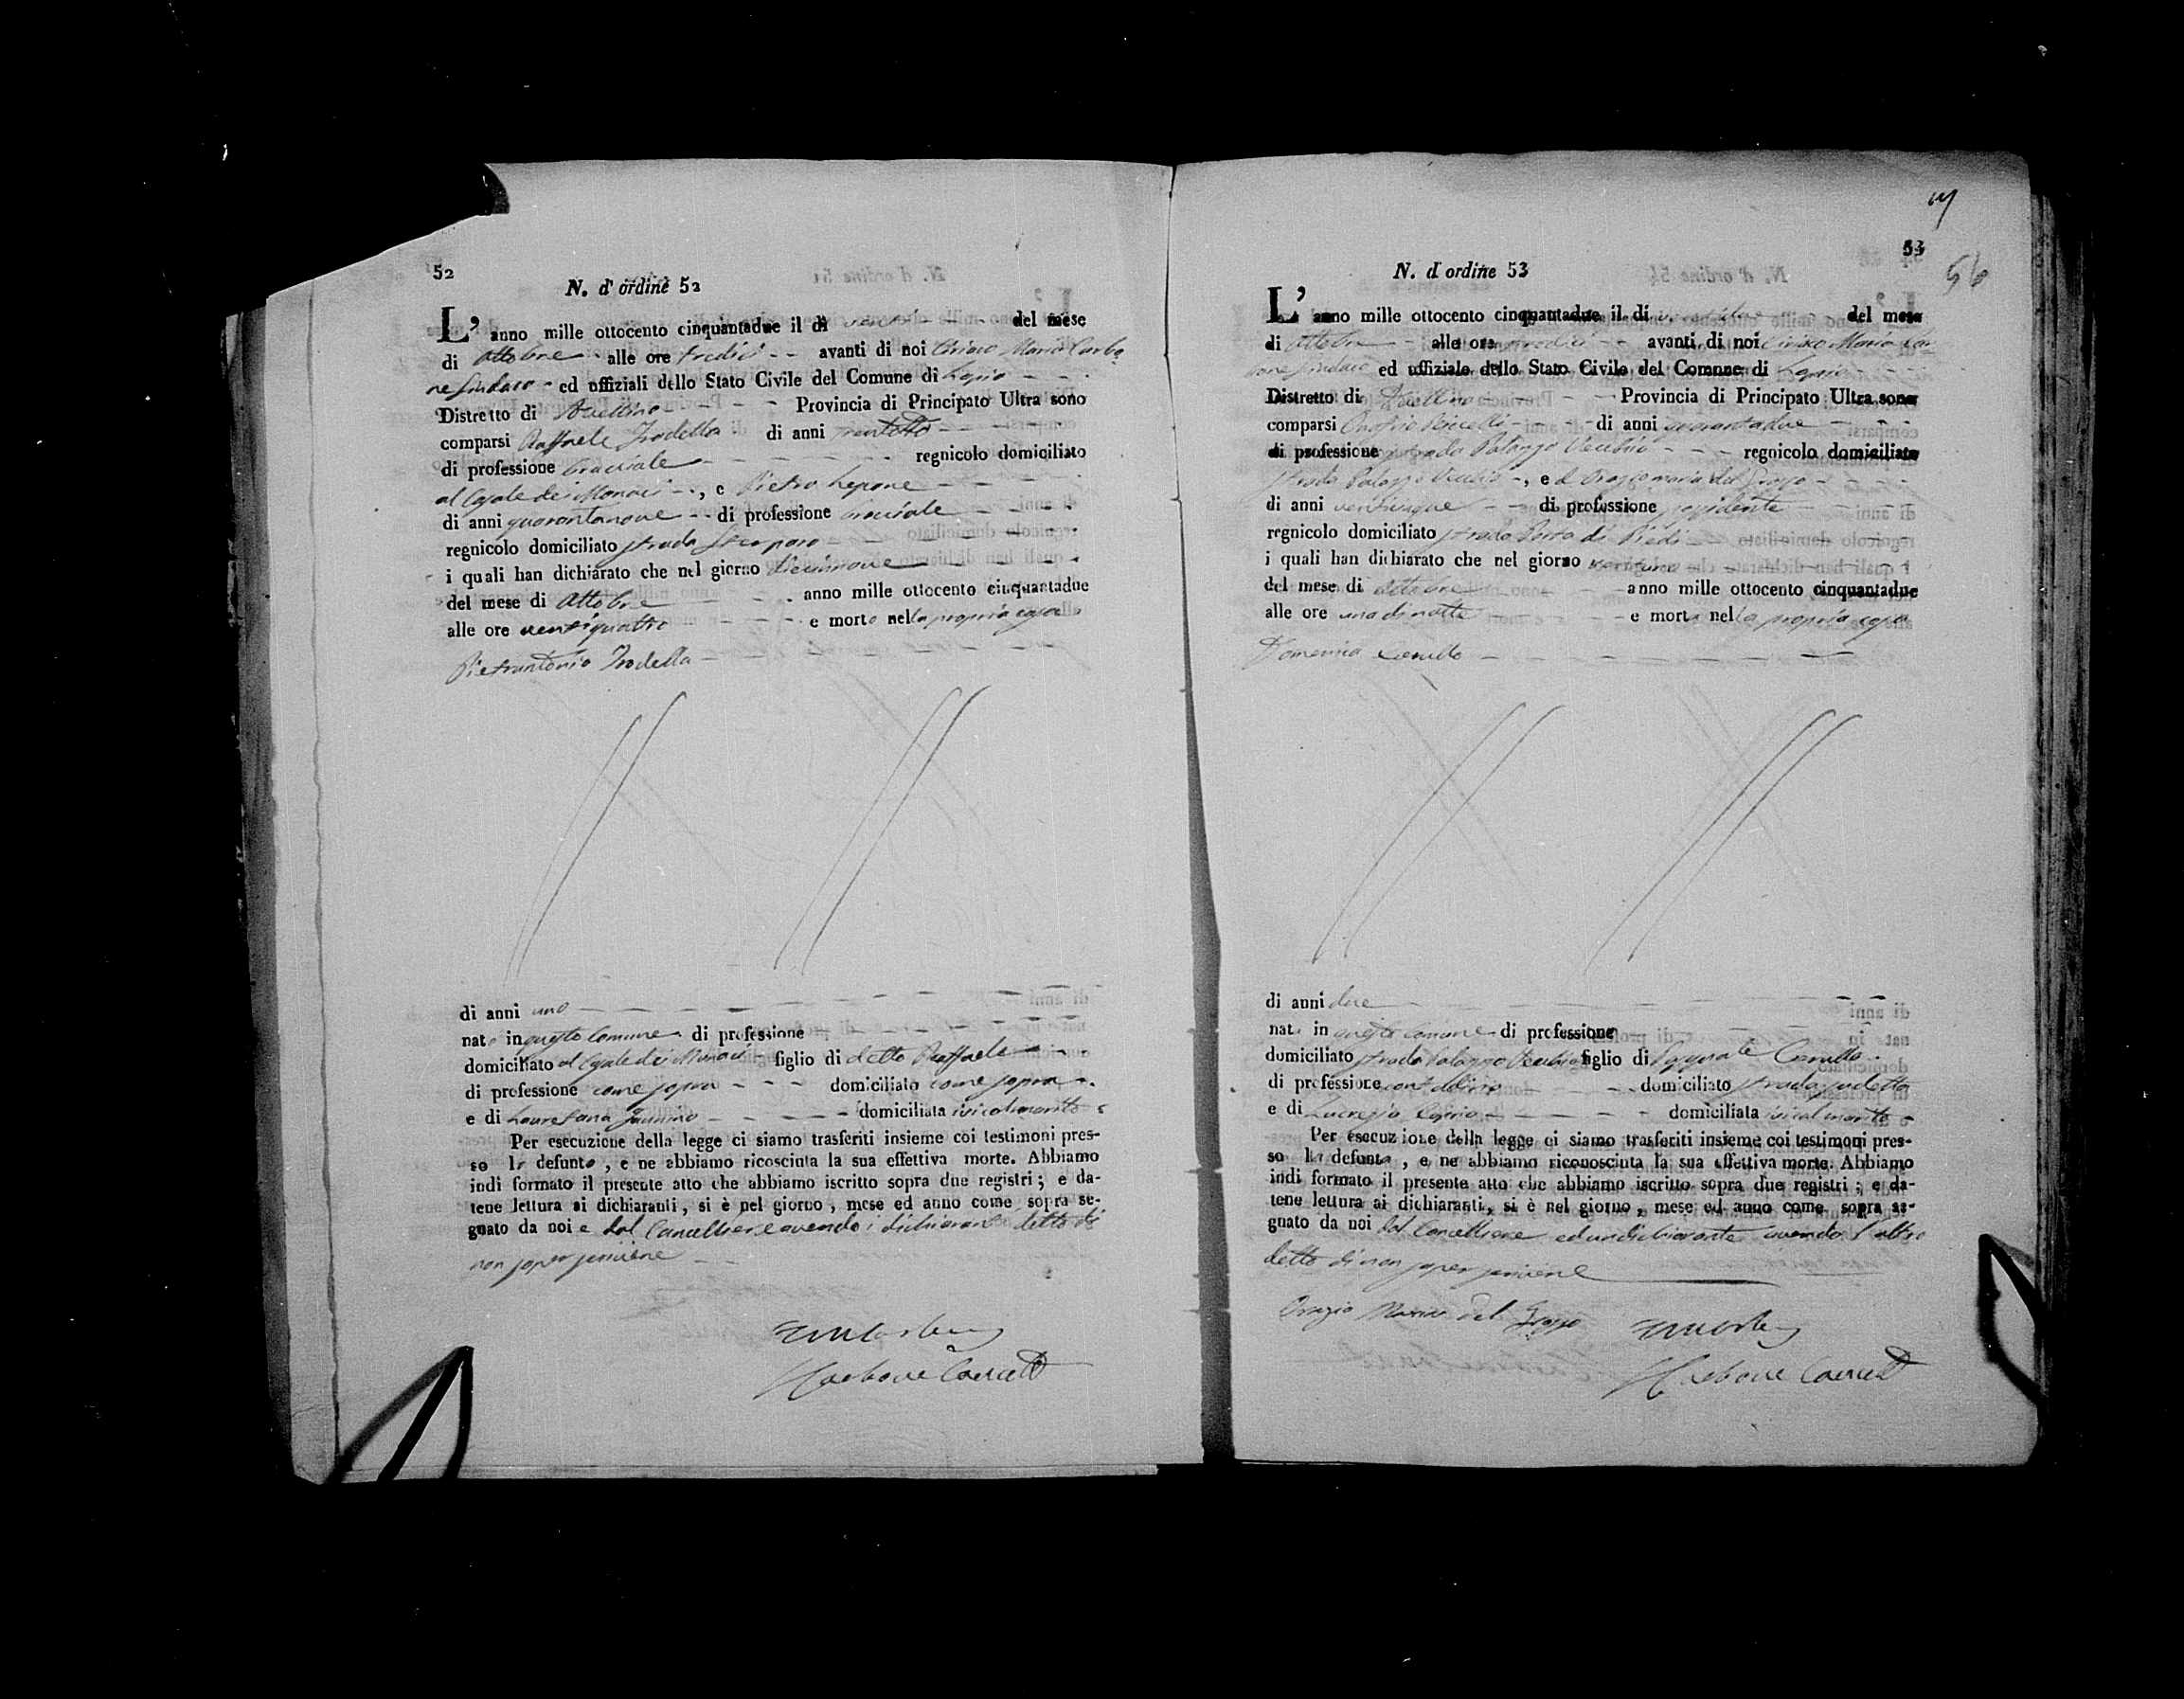 52
N. d' ordine 52
L' anno mille ottocento cinquantadue il dì venti del mese
di Ottobre alle ore tredici avanti di noi Ciriaco Maria Carbo
ne Sindaco ed uffiziali dello Stato Civile del Comune di Lapio
Distretto di Avellino Provincia di Principato Ultra sono
comparsi Raffaele Trodella di anni trentotto
di professione bracciale regnicolo domiciliato
al Casale dei Monaci , e Pietro Lepone
di anni quarantanove di professione bracciale
regnicolo domiciliato strada
i quali han dichiarato che nel giorno diecinnove
del mese di Ottobre anno mille ottocento cinquantadue
alle ore ventiquattro e morto nella propria casa
Pietrantonio Trodella
di anni uno
nato in questo Comune di professione
domiciliato al Casale dei Monaci figlio di detto Raffaele
di professione come sopra domiciliato come sopra
e di Lauretana domiciliata ivi col marito
Per esecuzione della legge ci siamo trasferiti insieme coi testimoni pres-
so lo defunto , e ne abbiamo ricosciuta la sua effettiva morte. Abbiamo
indi formato il presente atto che abbiamo iscritto sopra due registri ; e da-
tene lettura ai dichiaranti , si è nel giorno , mese ed anno come sopra se-
gnato da noi e dal Cancelliere avendo i dichiaranti detto di
non saper scrivere
Carbone
53
56
N. d ordine 53
L' anno mille ottocento cinquantadue il dì del mese
di Ottobre alle ore tredici avanti di noi Ciriaco Maria Car
bone Sindaco ed uffiziale dello Stato Civile del Comune di Lapio
Distretto di Avellino Provincia di Principato Ultra sono
comparsi di anni quarantadue
di professione strada Palazzo Vecchio regnicolo domiciliato
strada Palazzo Vecchio , e d Orazio maria del Grosso
di anni venticinque di professione possidente
regnicolo domiciliato strada Porta di Piedi
i quali han dichiarato che nel giorno ventuno
del mese di Ottobre anno mille ottocento cinquantadue
alle ore una di notte e morta nella propria casa
Domenica Carullo
di anni due
nata in questo comune di professione
domiciliato strada Palazzo Vecchio figlio di Pasquale Carullo
di professione contadino domiciliato strada sudetta
e di Lucrezia domiciliata ivi col marito
Per esecuzione della legge ci siamo trasferiti insieme coi testimoni pres-
so la defunta , e ne abbiamo riconosciuta la sua effettiva morte. Abbiamo
indi formato il presente atto che abbiamo iscritto sopra due registri ; e da-
tene lettura ai dichiaranti, si è nel giorno , mese ed anno come sopra se-
gnato da noi dal Cancelliere ed un dichiarante avendo l'altro
detto di non saper scrivere
Orazio Maria del Grosso
Carbone